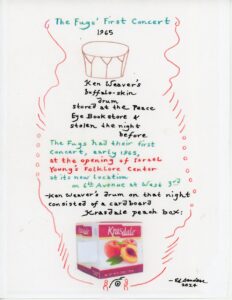 The Fugs' First Concert
1965
Ken Weaver's
buffalo-skin
drum
stored at the Peace
Eye Bookstore &
stolen the night
before
The Fugs had their first
concert, early 1965,
at the opening of Israel
Young's Folklore Center
at its new location
on 6th Avenue at West 3rd
—Ken Weaver's drum on that night
consisted of a cardboard
Krasdale peach box:
Krasdale
—Ed Sanders
2024